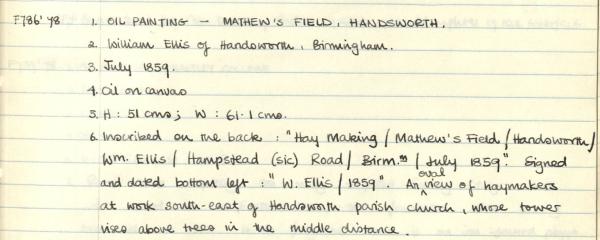 F786'78 1. OIL PAINTING — MATHEW'S FIELD, HANDSWORTH.
2. William Ellis of Handsworth, Birmingham.
3. July 1859.
4. Oil on canvas
5. H: 51 cms; W: 61.1 cms.
6. Inscribed on the back: "Hay Making / Mathew's Field / Handsworth /
Wm. Ellis / Hampstead (sic) Road / Birm.m / July 1859". Signed
and dated bottom left: "W. Ellis / 1859". An oval view of haymakers
at work south-east of Handsworth parish church, whose tower
rises above trees in the middle distance.